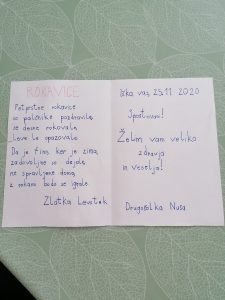 ROKAVICE
Petprstne rokavice
so palčnike pozdravile,
se desne rokovale,
leve le opazovale.
Da je fino, ker je zima,
zadovoljne so dejale,
ne spravljene doma,
z rokami bodo se igrale.
Zlatka Levstek
Iška vas, 25.11.2020
Spoštovani!
Želim vam veliko
zdravja
in veselja!
Drugošolka Nuša